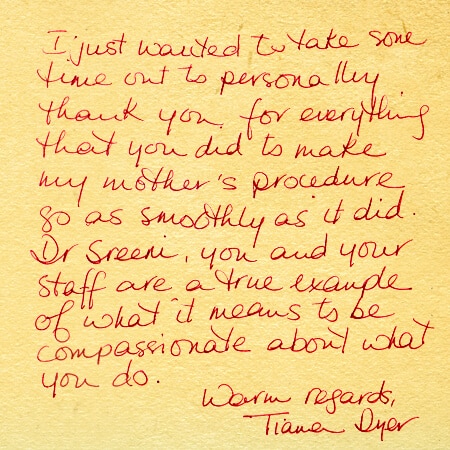 I just wanted to take some
time out to personally
thank you for everything
that you did to make
my mother's procedure
go as smoothly as it did.
Dr Sreeni, you and your
staff are a true example
of what it means to be
compassionate about what
you do.
Warm regards,
Tiana Dyer